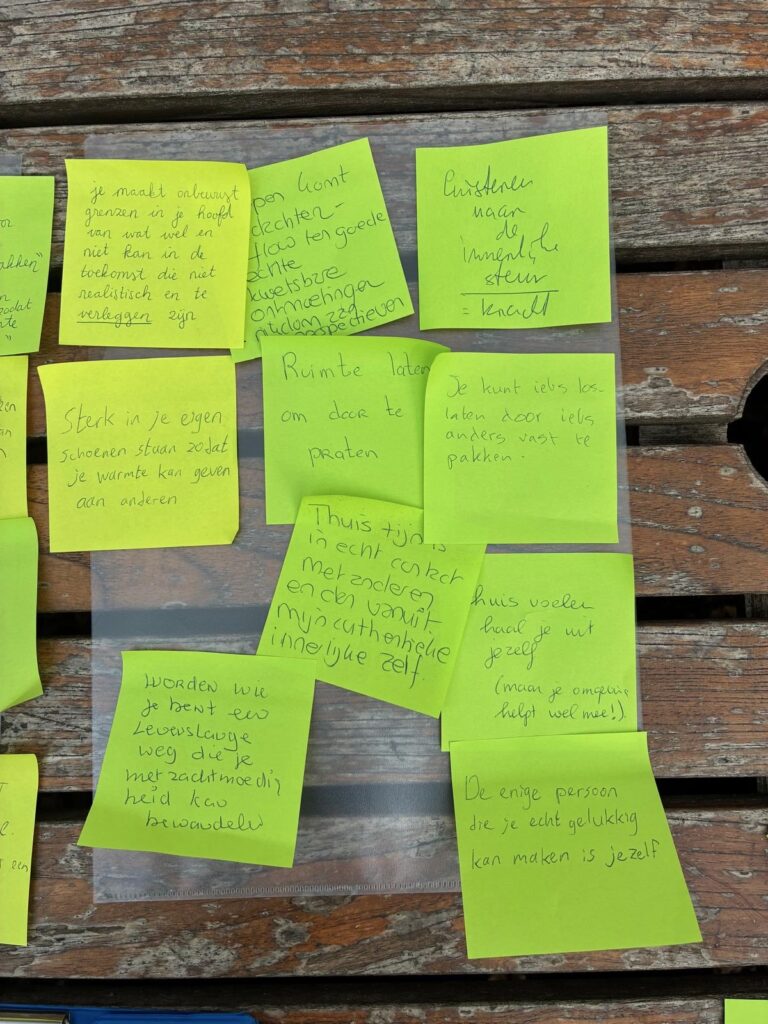 je maakt onbewust
grenzen in je hoofd
van wat wel en
niet kan in de
toekomst die niet
realistisch en te
verleggen zijn
pen komt
dachten-
flow ten goede
echte
kwetsbare
ontmoetingen
rondom
perspectieven
Luisteren
naar
de
innerlijke
stem
= kracht
akken"
zodat
Sterk in je eigen
schoenen staan zodat
je warmte kan geven
aan anderen
Ruimte laten
om door te
praten
Je kunt iets los-
laten door iets
anders vast te
pakken.
Thuis zijn is
in echt contact
met anderen
en dan vanuit
mijn authentieke
innerlijke zelf.
huis voelen
haal je uit
jezelf
(maar je omgeving
helpt wel mee!)
Worden wie
je bent een
Levenslange
weg die je
met zachtmoedig
heid kan
bewandelen
De enige persoon
die je echt gelukkig
kan maken is jezelf